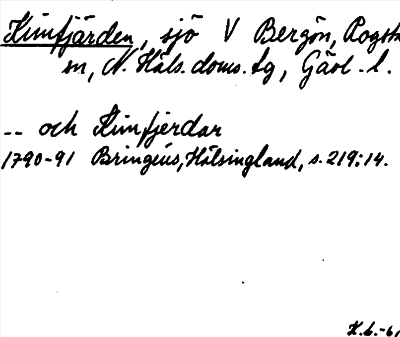 Kimfjärden, sjö V Bergön, Rogsta
sn, N. Häls. doms. tg, Gävl. l.
-- och Kimfjerdar
1790-91 Bringéus, Hälsingland, s. 219:14.
K.L.-61